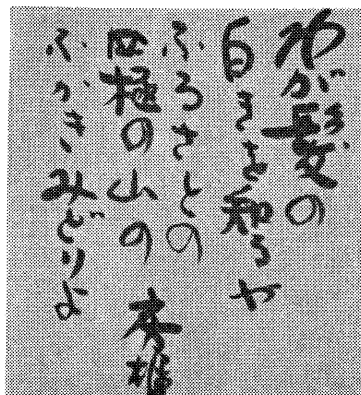 わが髪の
白きを知るや
ふるさとの
四極の山の
ふかきみどりよ
秀雄